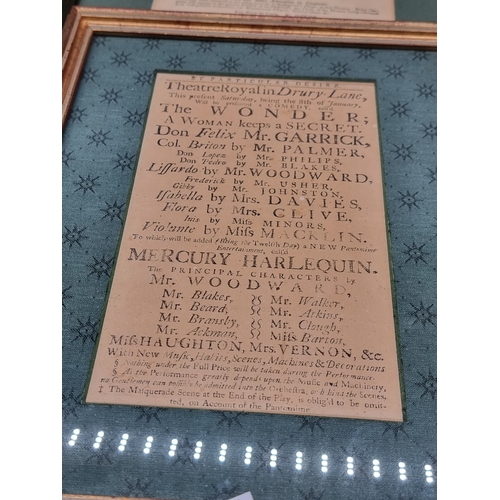 BY PARTICULAR DESIRE
Theatre Royal in Drury-Lane,
This present Saturday, being the 8th of January,
Will be presented a COMEDY, call'd
The WONDER;
A WOMAN keeps a SECRET.
Don Felix Mr. GARRICK,
Col. Briton by Mr. PALMER,
Don Lopez by Mr. PHILIPS,
Don Pedro by Mr. BLAKES,
Lissardo by Mr. WOODWARD,
Frederick by Mr. USHER,
Gibby by Mr. JOHNSTON,
Isabella by Mrs. DAVIES,
Flora by Mrs. CLIVE,
Inis by Miss MINORS,
Violante by Miss MACKLIN.
(To which will be added (Being the Twelfth Day) a NEW Pantomime
Entertainment, call'd
MERCURY HARLEQUIN.
The PRINCIPAL CHARACTERS by
Mr. WOODWARD,
Mr. Blakes, Mr. Walker,
Mr. Beard, Mr. Atkins,
Mr. Bransby, Mr. Clough,
Mr. Ackman, Miss Barton,
Miss HAUGHTON, Mrs. VERNON, &c.
With New Music, Habits, Scenes, Machines & Decorations
§ Nothing under the Full Price will be taken during the Performance.
§ As the Performance greatly depends upon the Music and Machinery,
no Gentlemen can possibly be admitted into the Orchestra, or behind the Scenes.
‡ The Masquerade Scene at the End of the Play, is oblig'd to be omit-
ted, on Account of the Pantomime.